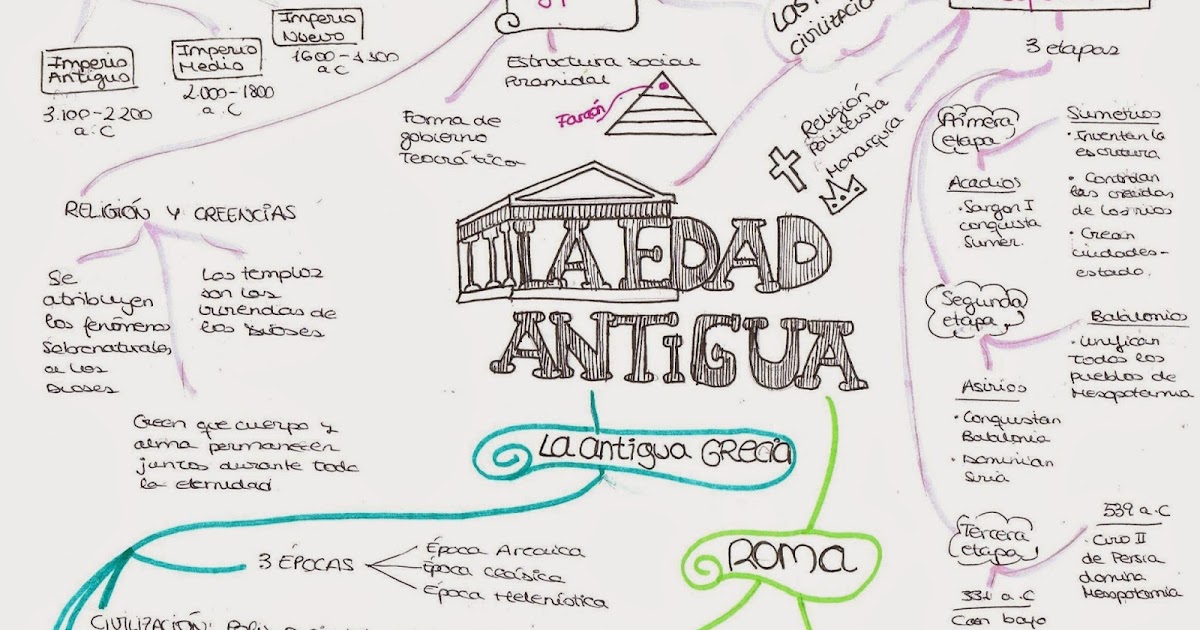 Imperio
Antiguo
3.100-2.200
a.C
Imperio
Medio
2.000-1800
a.C
Imperio
Nuevo
1600-1300
a.C
Estructura social
Piramidal
Faraón
Forma de
gobierno
Teocrático
Las
civilizacio
Religión
Politeista
Monarquía
3 etapas
Primera
etapa
Sumerios
·Inventan la
escritura
· Controlan
las crecidas
de los rios
· Crean
ciudades-
estado.
Acadios
·Sargon I
conquista
Sumer.
Segunda
etapa
Babilonios
·Unifican
todos los
pueblos de
Mesopotamia
Asirios
·Conquistan
Babilonia
·Dominan
Siria
Tercera
etapa
539 a.C
· Ciro II
de Persia
domina
Mesopotamia
331 a.C
Caen bajo
RELIGIÓN Y CREENCIAS
Se
atribuyen
los fenómenos
sobrenaturales
a los
Dioses
Los templos
son las
viviendas de
los Dioses
Creen que cuerpo y
alma permanecen
juntos durante toda
la eternidad
LA EDAD
ANTIGUA
La antigua GRECIA
3 ÉPOCAS
Época Arcaica
Época Clásica
Época Helenística
ROMA
CIVILIZACIÓN: